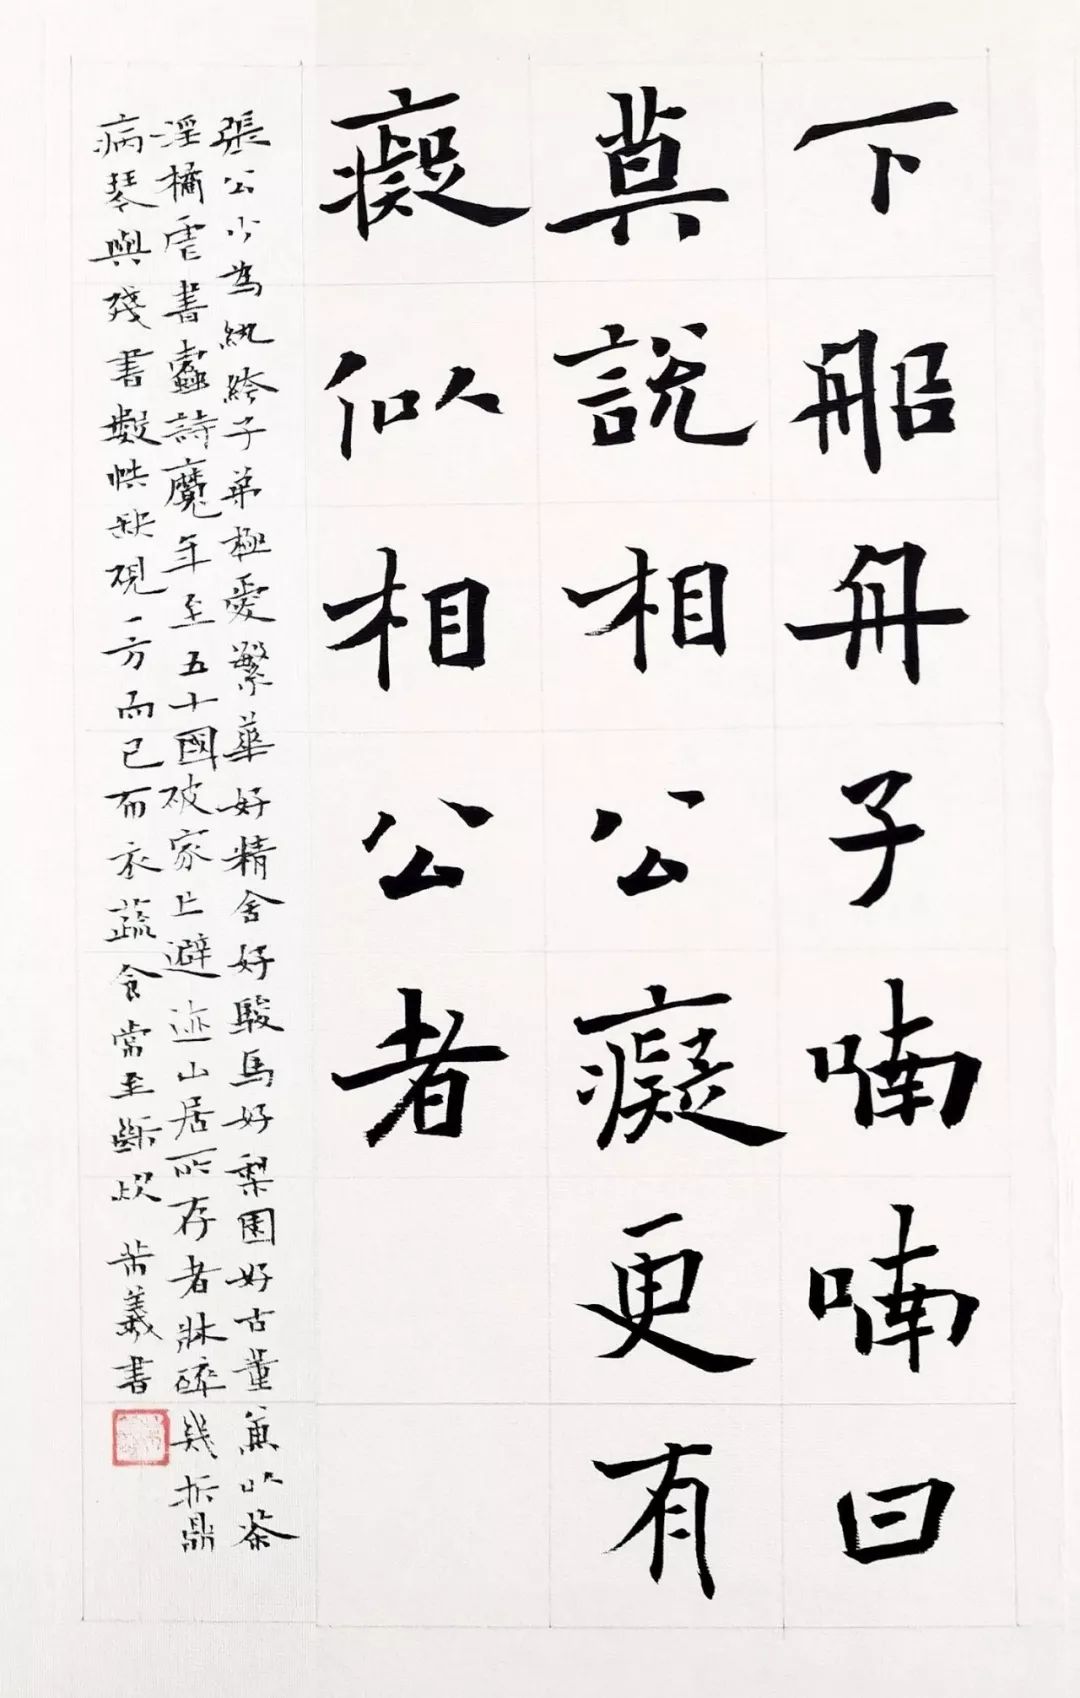 下船舟子喃喃曰
莫說相公癡更有
癡似相公者
張公少為紈絝子弟極愛繁華好精舍好駿馬好梨園好古董兼以茶
淫橘虐書蠹詩魔年至五十國破家亡避迹山居所存者牀碎幾折鼎
病琴與殘書數帙缺硯一方而已布衣蔬食常至斷炊 羲書